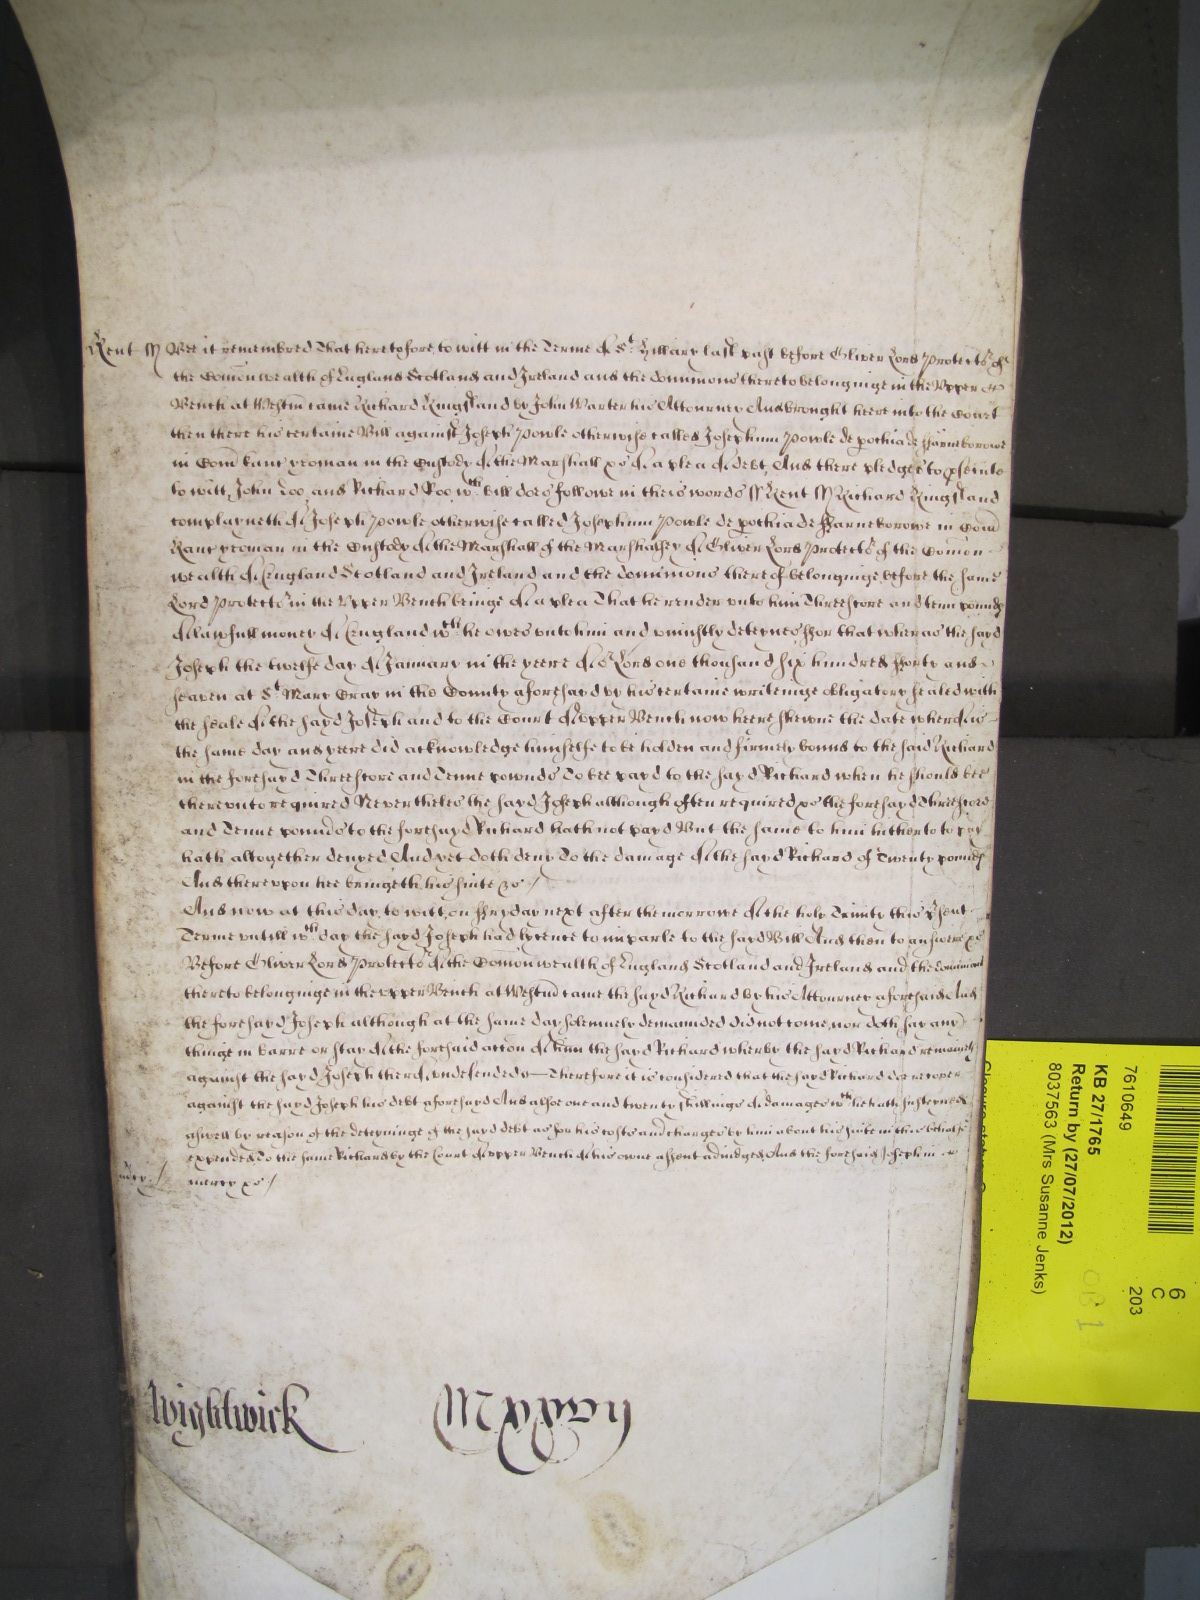 Kent ss Bee it remembred That heretofore, to witt in the Terme of St. Hillary last past before Oliver Lord Protector of
the Comonwealth of England Scotland and Ireland and the dominions thereto belonginge in the Upper
Bench at Westm came Richard Kingsland by John Warter his Attourney And brought heere into the Court
then there his certaine Bill against Joseph Powle otherwise called Josephum Powle de pochia de Farneborowe
in Com Kanc yeoman in the Custody of the Marshall &c of a plea of debt, And there pledges to psecute
to witt, John Doo, and Richard Roo wch bill does followe in theis words ss Kent ss Richard Kingsland
complayneth of Joseph Powle otherwise called Josephum Powle de pochia de ffarneborowe in Com
Kanc yeoman in the Custody of the Marshall of the Marshalsey of Oliver Lord Protector of the Comon
wealth of England Scotland and Ireland and the dominions thereof belonginge before the same
Lord Protector in the Upper Bench beinge of a plea That he render unto him Threescore and tenn pounds
of lawfull money of England wch he owes unto him and uniustly deteynes ffor that wheras the sayd
Joseph the twelfe day of January in the yeere of or Lord one thousand six hundred fforty and
seaven at St. Mary Cray in the County aforesayd by his certaine writeinge obligatory sealed with
the seale of the sayd Joseph and to the Court of upper Bench now heere shewne the date wherof is
the same day and yeere did acknowledge himselfe to be holden and firmely bound to the said Richard
in the foresayd Threescore and Tenne pownds To bee payd to the sayd Richard when he should bee
thereunto required Neverthelesse the sayd Joseph although often required &c the foresayd Threescore
and Tenne pounds to the foresayd Richard hath not payd But the same to him hitherto to pay
hath altogether denyed And yet doth deny To the damage of the sayd Richard of Twenty pounds
And thereuppon hee bringeth his suite &c /
And now at this day, to witt, on ffryday next after the morrowe of the holy Trinity this psent
Terme untill wch day the sayd Joseph had lycence to imparle to the sayd Bill And then to answere &c
Before Oliver Lord Protector of the Comonwealth of England Scotland and Ireland and the dominions
thereto belonginge in the upper Bench at Westm came the sayd Richard by his Attourney aforesaid And
the foresayd Joseph although at the same day solemnely demaunded did not come, nor doth say any
thinge in barre or stay of the foresaid accon of him the sayd Richard wherby the sayd Richard remaineth
against the sayd Joseph therof undefended Therefore it is considered that the sayd Richard doe recover
against the sayd Joseph his debt aforesayd And alsoe one and twenty shillings of damages wch he hath susteyned
aswell by reason of the deteyninge of the sayd debt as for his costs and charges by him about his suite in this behalfe
expended To the same Richard by the Court of upper Bench of his owne assent adiudged, And the foresaid Joseph in
mercy &c /
Wightwick
6
C
203
7610649
KB 27/1765
Return by (27/07/2012)
8037563 (Mrs Susanne Jenks)